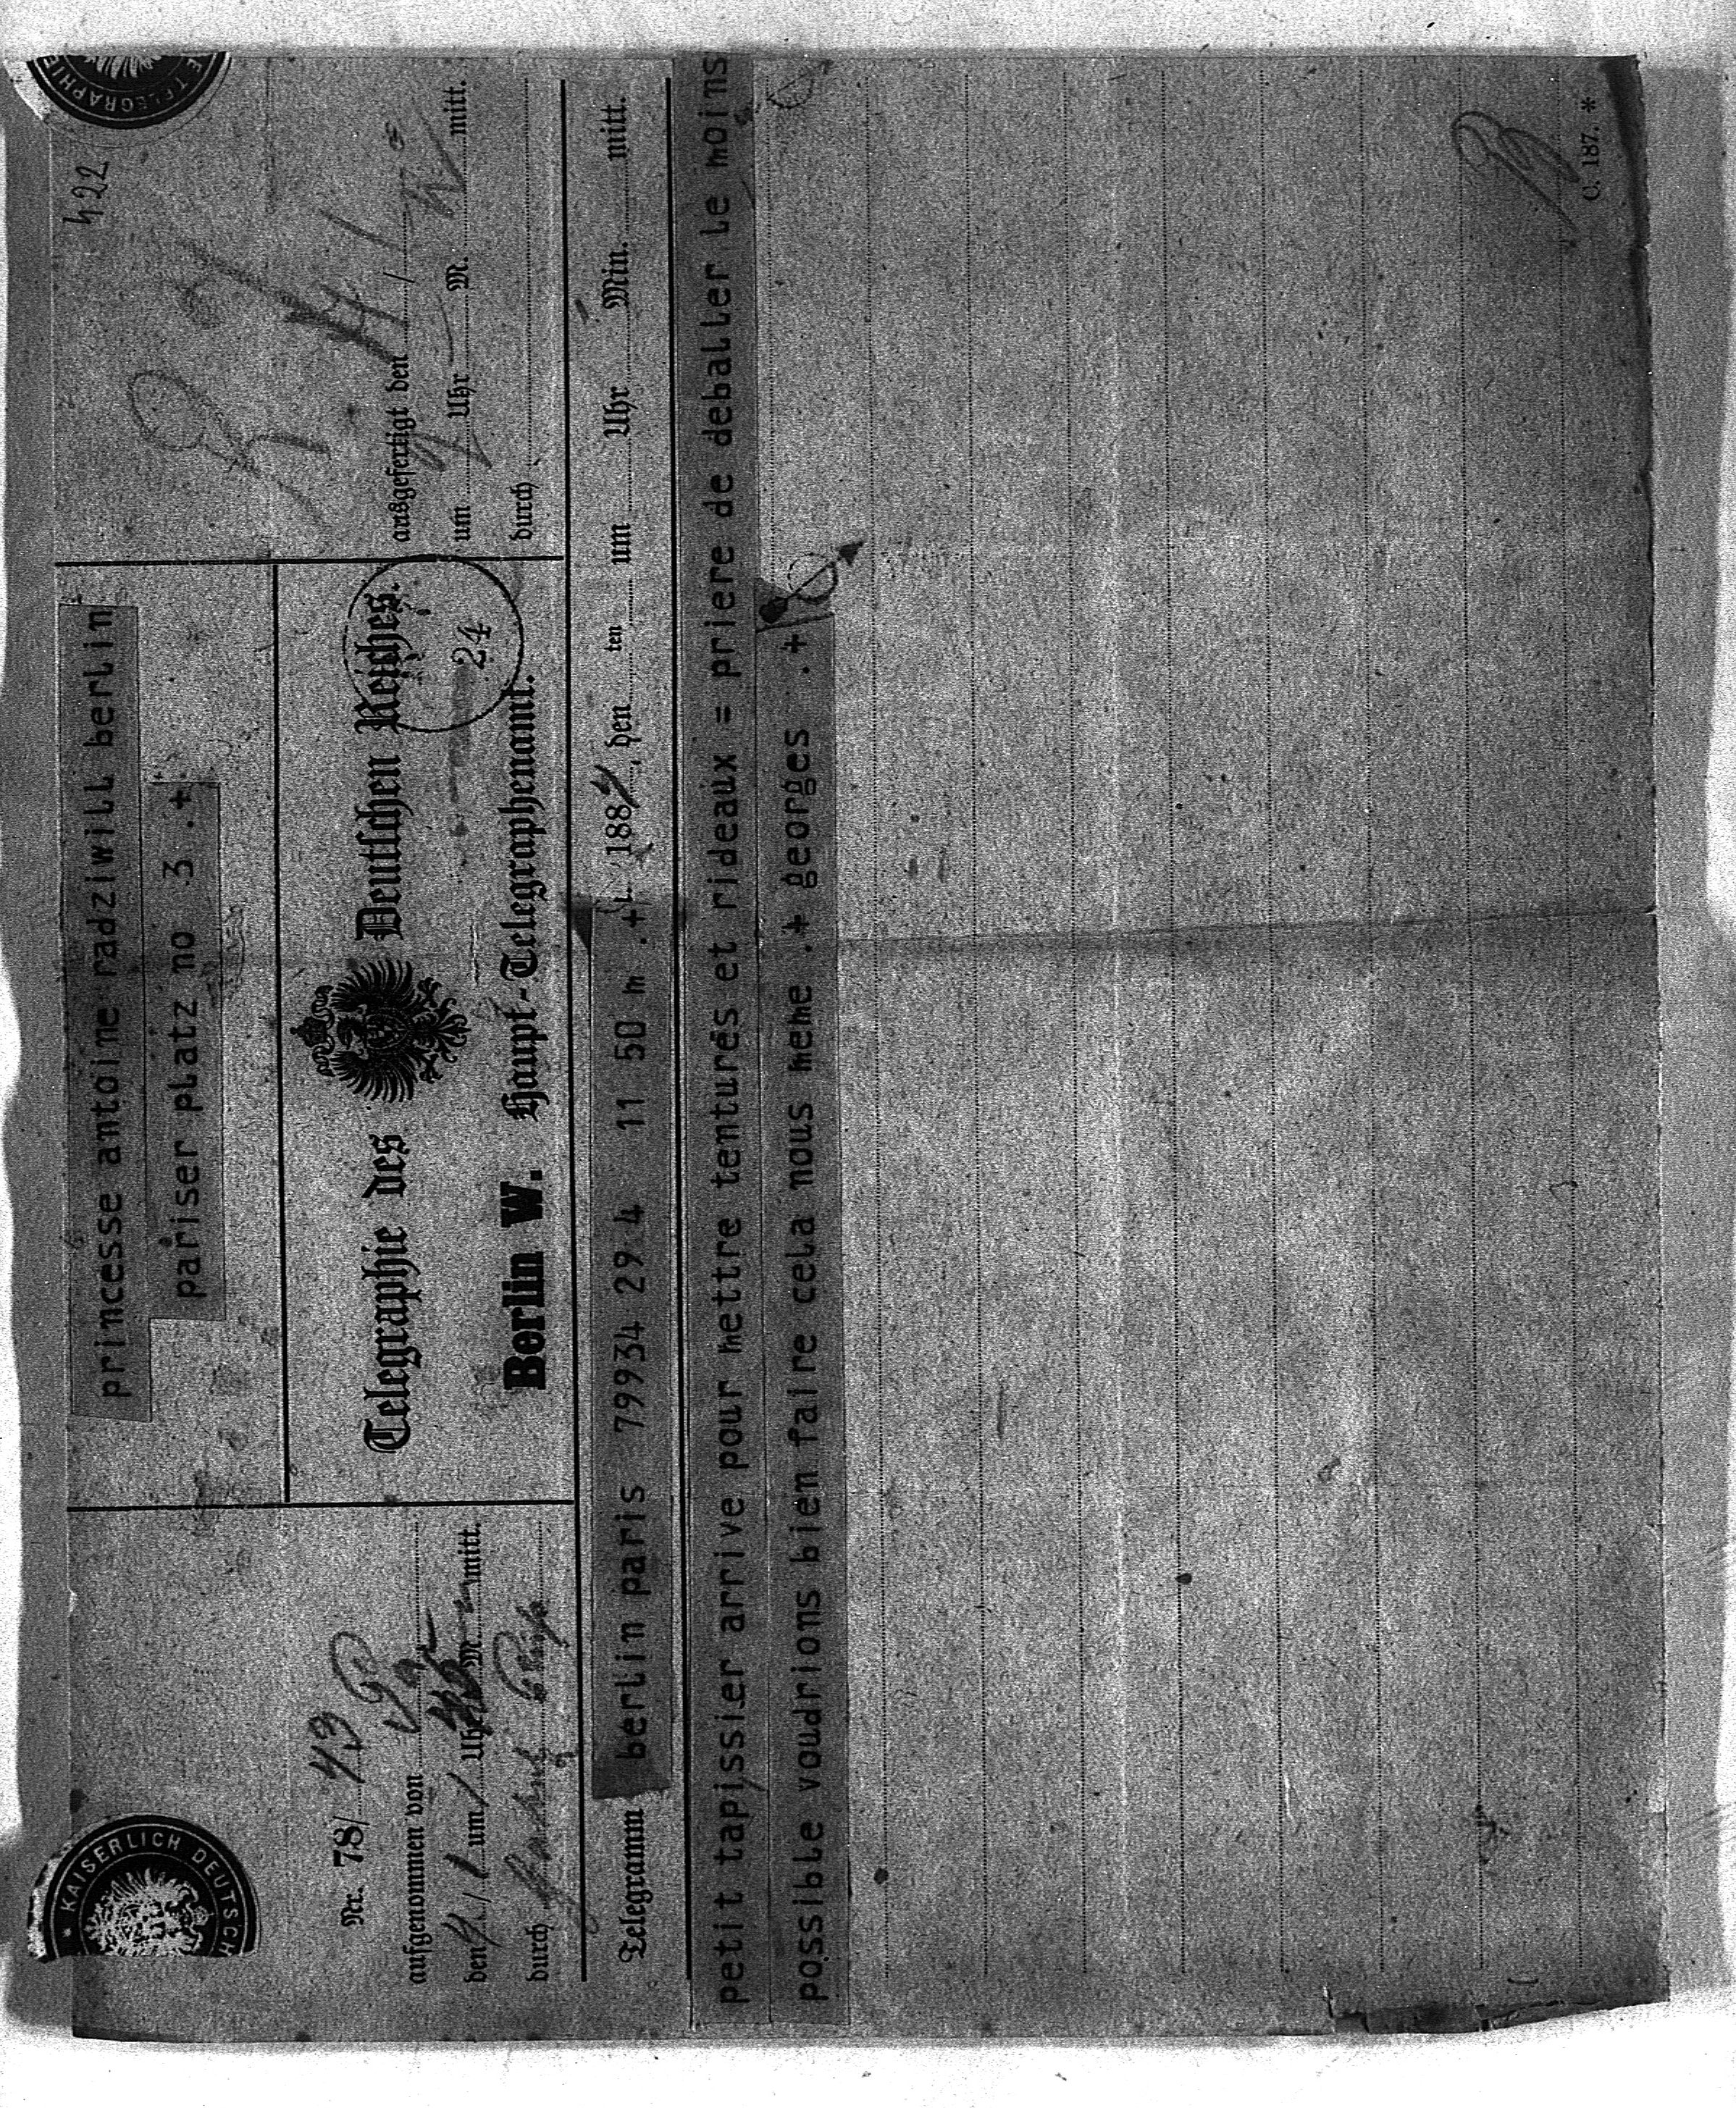 princesse antoine radziwill berlin
pariser platz no 3 .+
422
KAISERLICH DEUTSCH
E TELEGRAPHIE
Nr. 78/
aufgenommen von
den / um Uhr M. mitt.
durch
Telegraphie des Deutschen Reiches.
Berlin W. Haupt-Telegraphenamt.
24
ausgefertigt den /
um Uhr M. mitt.
durch
Telegramm berlin paris 79934 29 4 11 50 m .+ 188 , den ten um Uhr Min. mitt.
petit tapissier arrive pour mettre tentures et rideaux = priere de deballer le moins
possible voudrions bien faire cela nous meme .+ georges .+
C. 187. *